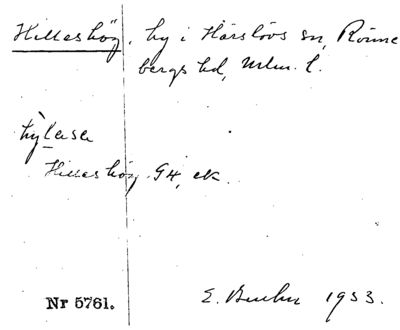 Hilleshög, by i Härslövs sn, Rönne
bergs hd, Mlm. l.
hỳlesa
Hilleshög G4, ek.
Nr 5761.
E. 1933.